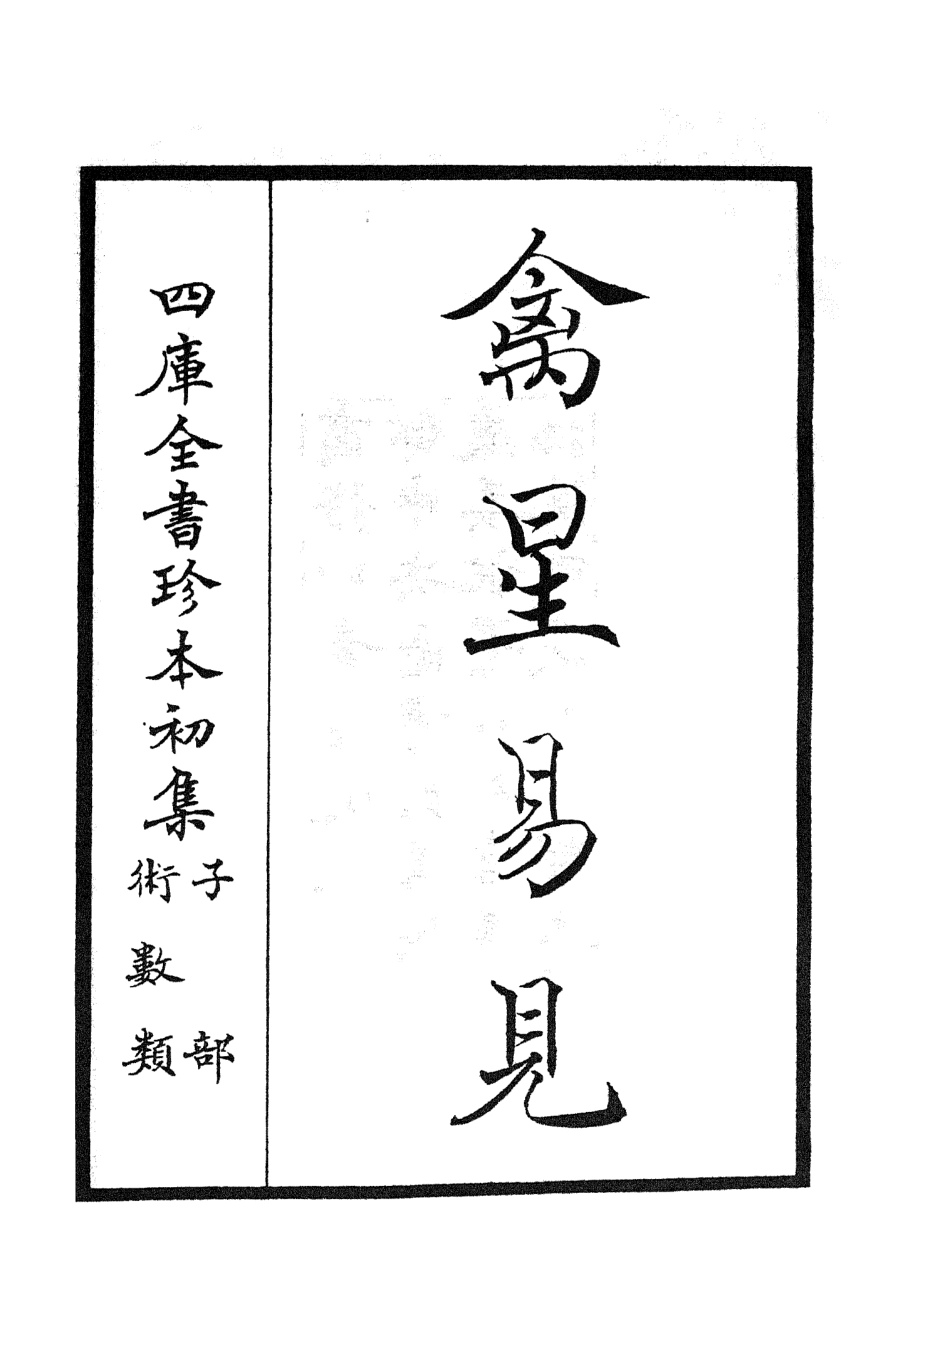 禽星易見
四庫全書珍本初集
子部
術數類